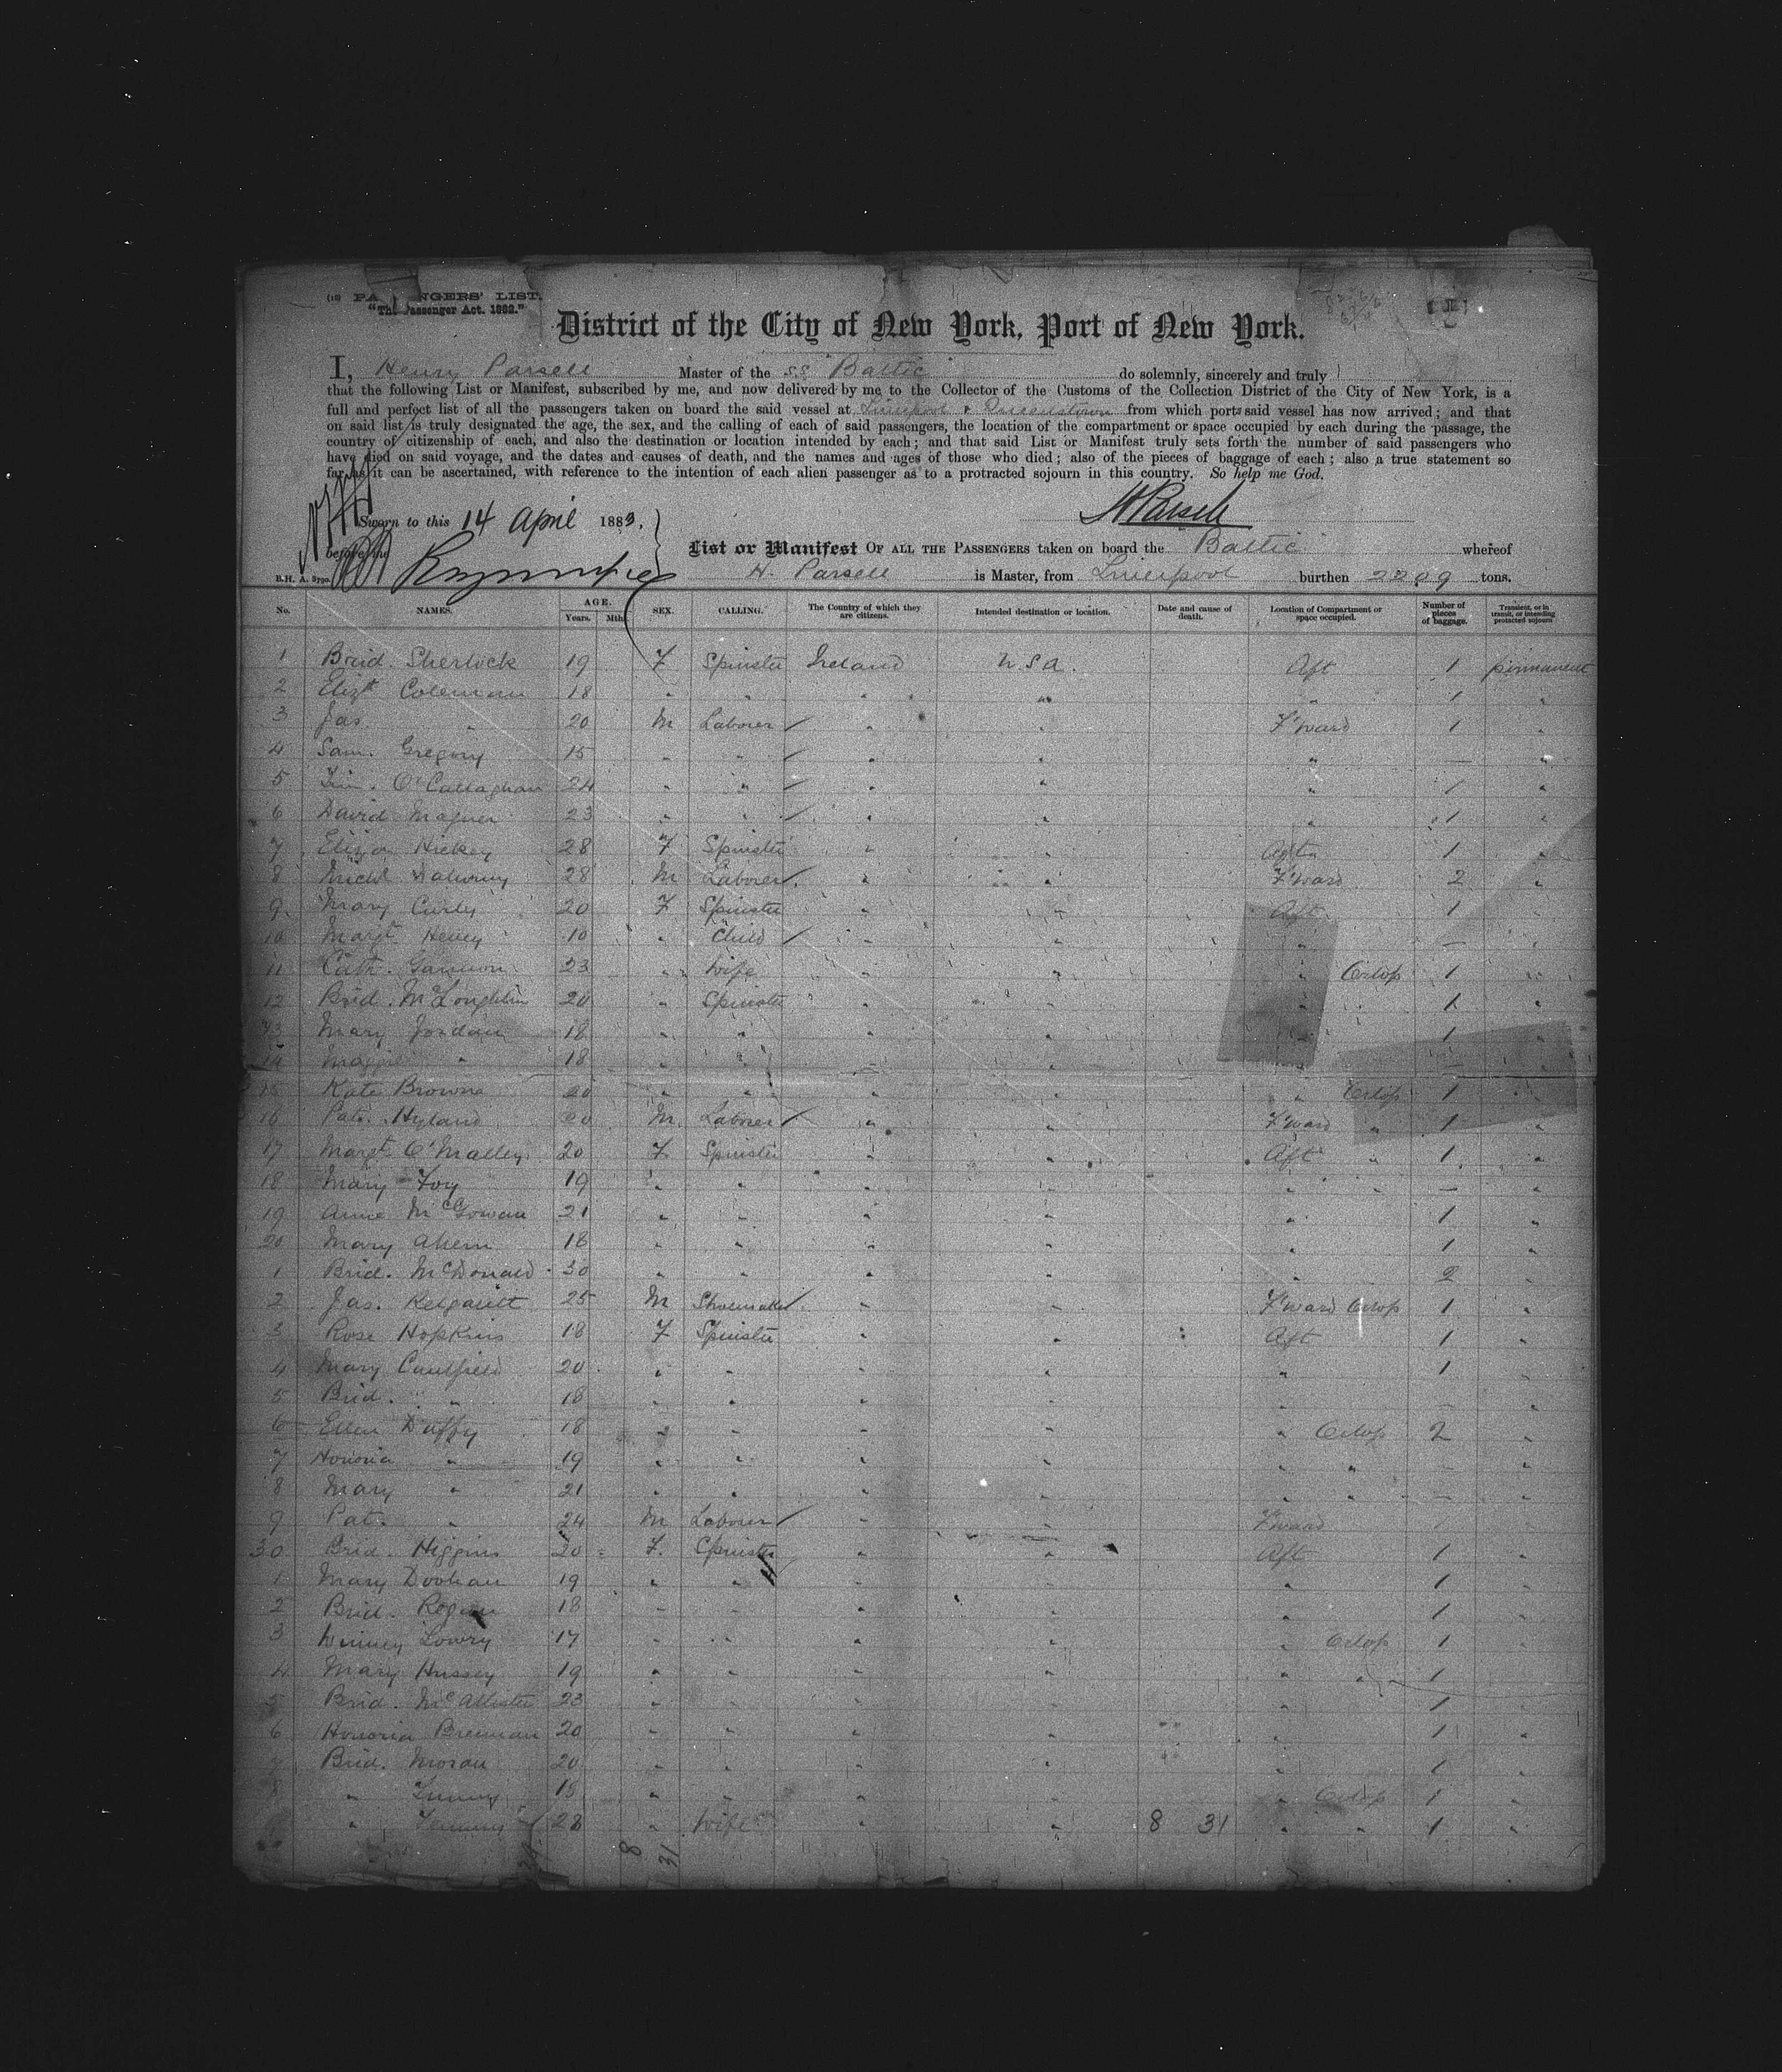 (18) PA NGERS' LIST.
"The Passenger Act. 1882."
District of the City of New York, Port of New York.
I, Henry Parsell Master of the SS "Baltic" do solemnly, sincerely and truly
that the following List or Manifest, subscribed by me, and now delivered by me to the Collector of the Customs of the Collection District of the City of New York, is a
full and perfect list of all the passengers taken on board the said vessel at Liverpool & Queenstown from which ports said vessel has now arrived; and that
on said list is truly designated the age, the sex, and the calling of each of said passengers, the location of the compartment or space occupied by each during the passage, the
country of citizenship of each, and also the destination or location intended by each; and that said List or Manifest truly sets forth the number of said passengers who
have died on said voyage, and the dates and causes of death, and the names and ages of those who died; also of the pieces of baggage of each; also a true statement so
far as it can be ascertained, with reference to the intention of each alien passenger as to a protracted sojourn in this country. So help me God.
Sworn to this 14 April 1883, H Parsell
before me List or Manifest OF ALL THE PASSENGERS taken on board the Baltic whereof
B.H. A. 8790. H. Parsell is Master, from Liverpool burthen 2209 tons.
No. NAMES. AGE. Years. Mth. SEX. CALLING. The Country of which they are citizens. Intended destination or location. Date and cause of death. Location of Compartment or space occupied. Number of pieces of baggage. Transient, or in transit, or intending protracted sojourn
1 Brid. Sherlock 19 F Spinster Ireland U.S.A. Aft 1 permanent
2 Elizt Coleman 18 " " " " " 1 "
3 Jas. " 20 M Laborer " " F'ward 1 "
4 Sam. Gregory 15 " " " " " — "
5 Tim. O'Callaghan 24 " " " " " 1 "
6 David Magner 23 " " " " " 1 "
7 Eliza Hickey 28 F Spinster " " 1 "
8 Michl 28 M Laborer " " F'ward 2 "
9 Mary Curley 20 F Spinster " " Aft 1 "
10 Margt Henry 10 " Child " " " — "
11 Cath. 23 " Wife " " " Orlop 1 "
12 Brid. McLoughlin 20 " Spinster " " " 1 "
13 Mary Jordan 18 " " " " " 1 "
14 Maggie " 18 " " " " "
15 Kate Browne 20 " " " " " Orlop 1 "
16 Pat. Hyland 20 M Laborer " " F'ward " 1 "
17 Margt O'Malley 20 F Spinster " " Aft " 1 "
18 Mary Foy 19 " " " " " " — "
19 Anne McGowan 21 " " " " " 1 "
20 Mary Ahern 18 " " " " " 1 "
1 Brid. McDonald 30 " " " " " 2 "
2 Jas. 25 M Shoemaker " " F'ward Orlop 1 "
3 Rose Hopkins 18 F Spinster " " Aft 1 "
4 Mary Caulfield 20 " " " " " 1 "
5 Brid. " 18 " " " " " — "
6 Ellen Duffy 18 " " " " " Orlop 2 "
7 Honoria " 19 " " " " " " — "
8 Mary " 21 " " " " " " — "
9 Pat. " 24 M Laborer " " F'ward
30 Brid. Higgins 20 F. Spinster " " Aft 1 "
1 Mary Doohan 19 " " " " " 1 "
2 Brid. Rogan 18 " " " " " 1 "
3 Winney Lowry 17 " " " " " Orlop 1 "
4 Mary Hussey 19 " " " " " " 1 "
5 Brid. McAllister 23 " " " " " 1 "
6 Honoria Brennan 20 " " " " " 1 "
7 Brid. Moran 20 " " " " " 1 "
8 " 18 " " " " " Orlop 1 "
" 28 " Wife " " 8 31 " " 1 "
8 31